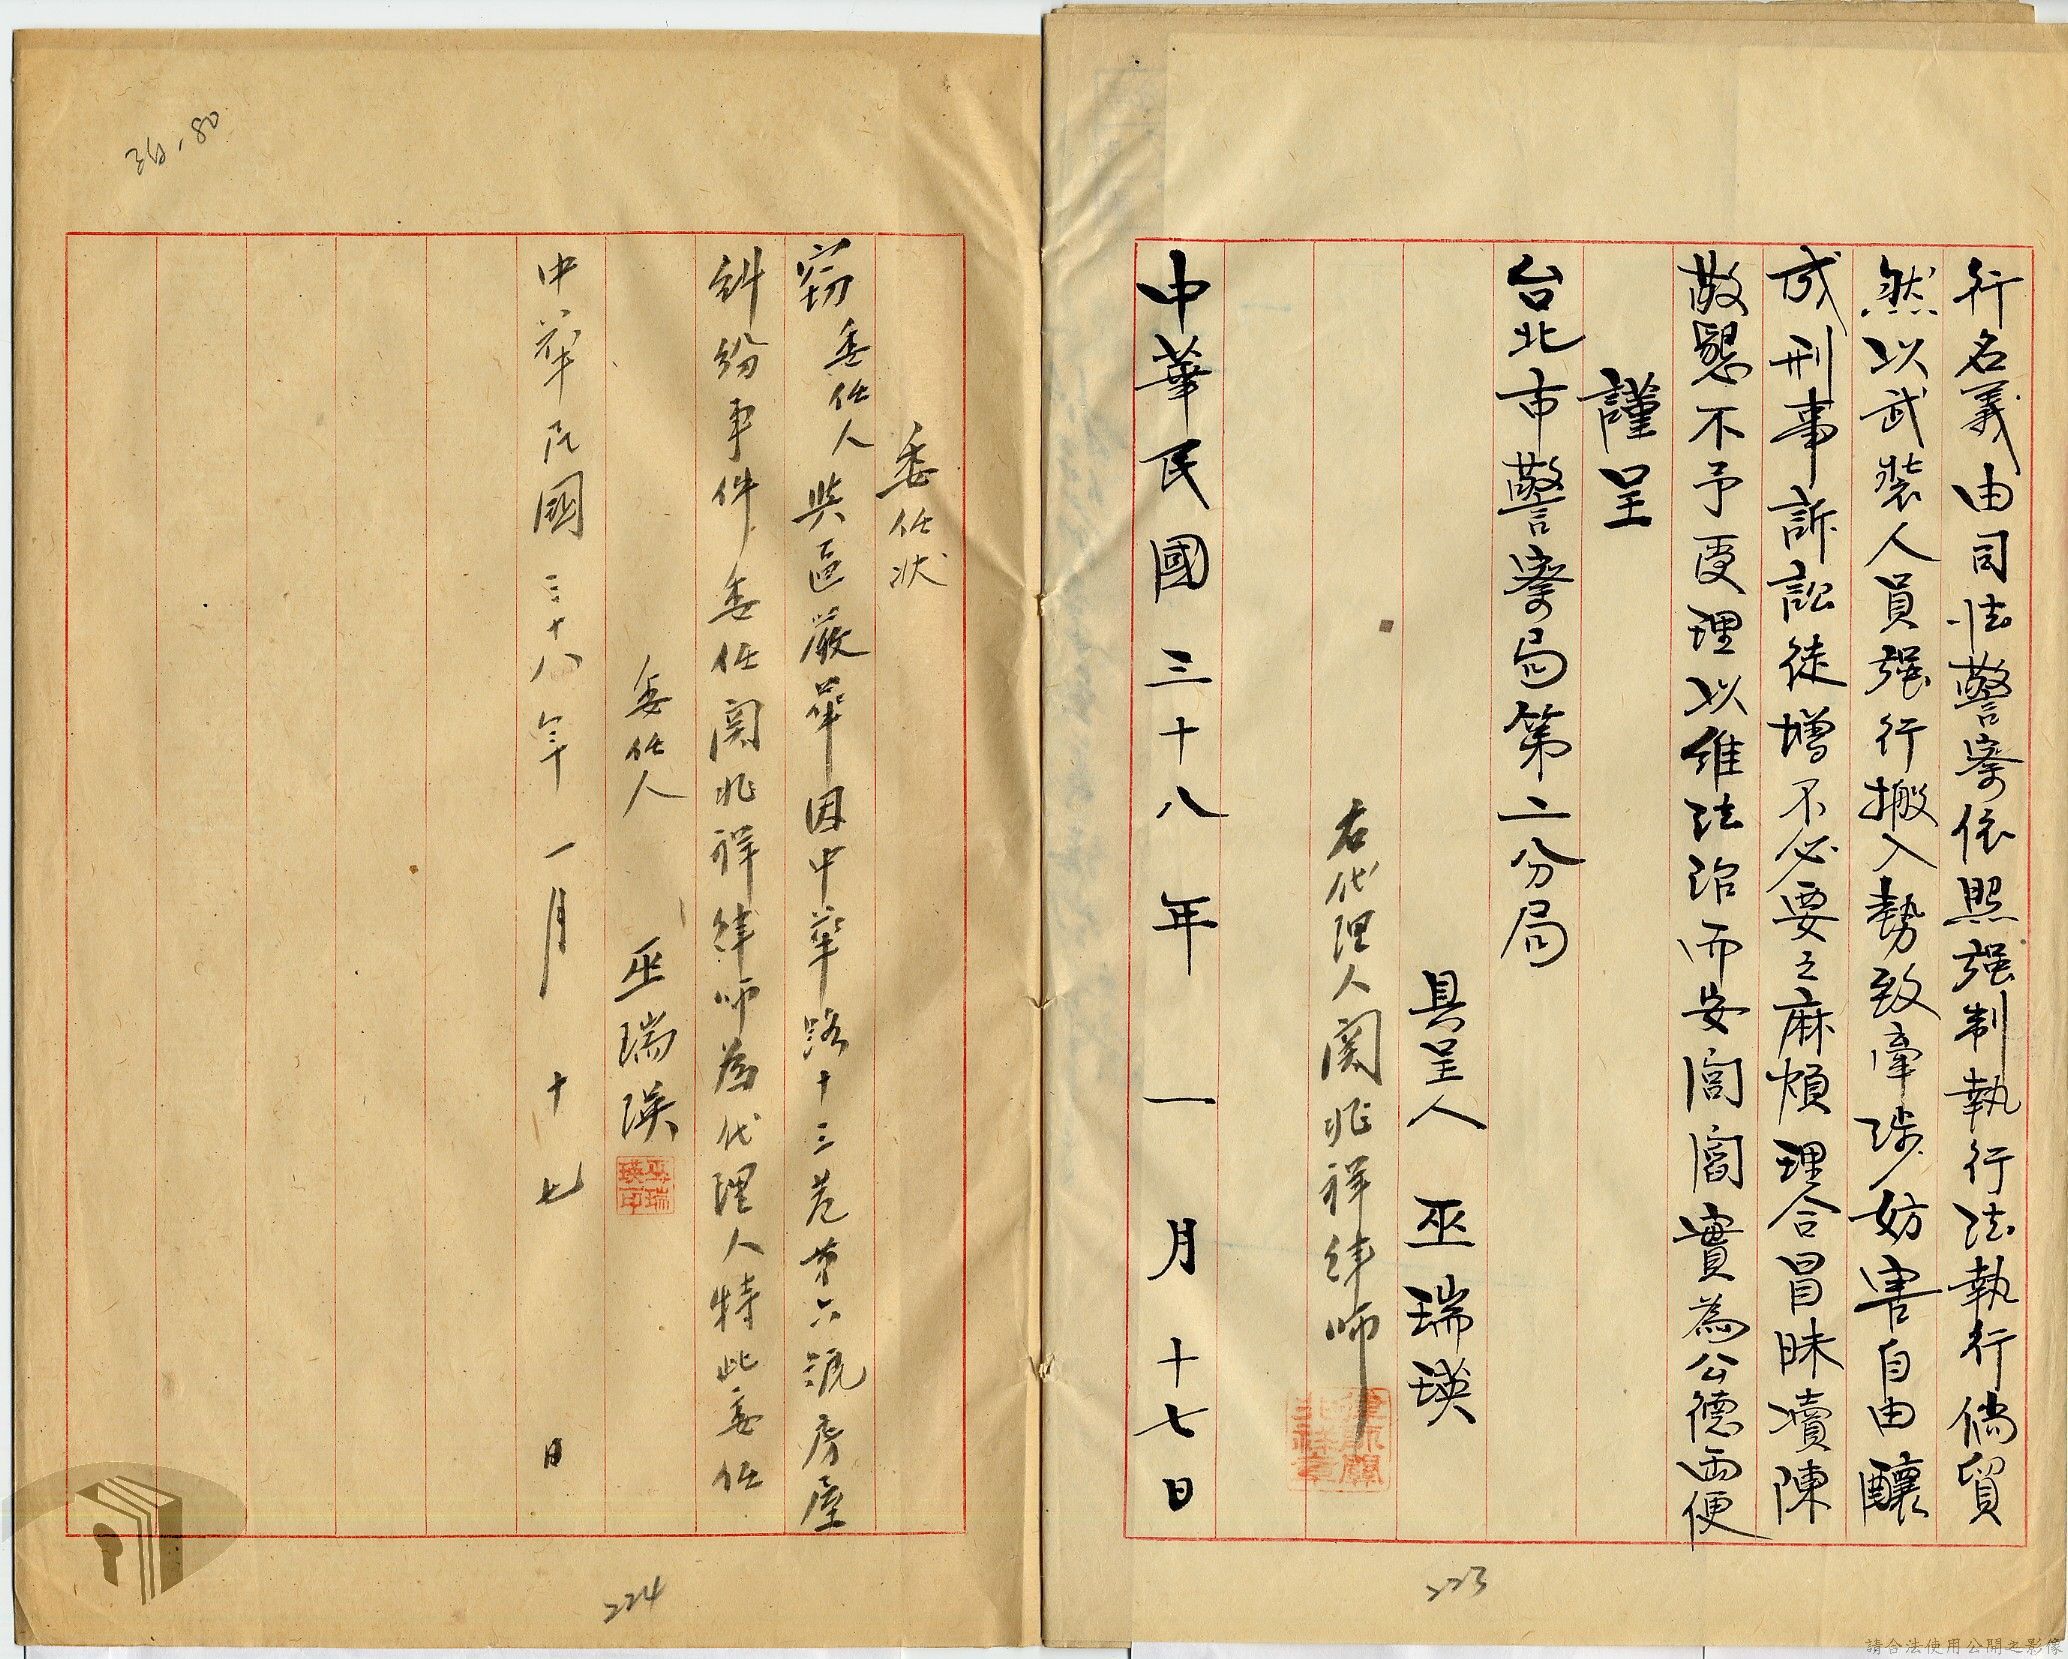 行名義由司法警察依照强制執行法執行倘貿
然以武裝人員强行搬入勢致牽涉妨害自由釀
成刑事訴訟徒增不必要之麻煩理合冒昧瀆陳
敬懇不予受理以維法治而安閭閻實為公德両便
謹呈
台北市警察局第二分局
具呈人 巫瑞瑛
右代理人関兆祥律師
律師關兆祥章
中華民國三十八年一月十七日
223
委任狀
窃委任人與區嚴華因中華路十三巷第六號房屋
糾紛事件委任関兆祥律师為代理人特此委任
委任人 巫瑞瑛
巫瑞瑛印
中華民國三十八年一月十七日
224
請合法使用公開之影像